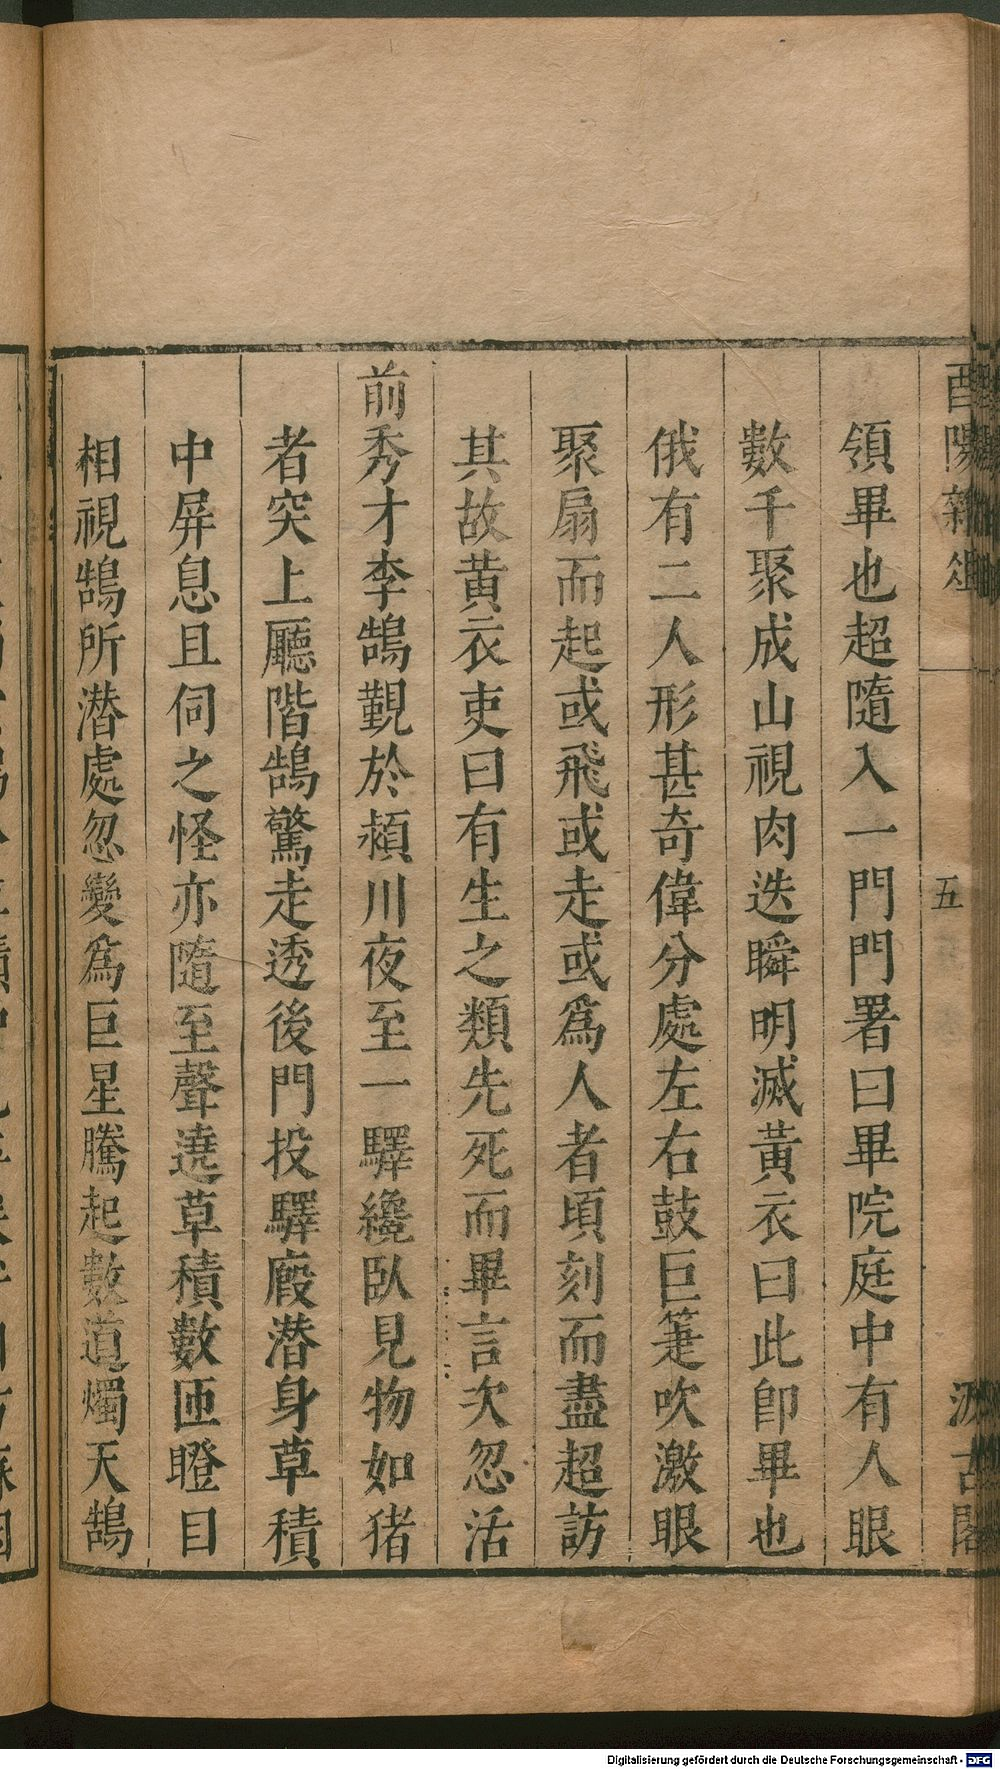 酉陽雜俎
五
汲古閣
領畢也超隨入一門門署曰畢院庭中有人眼
數千聚成山視肉迭瞬明滅黃衣曰此卽畢也
俄有二人形甚奇偉分處左右鼓巨箑吹激眼
聚扇而起或飛或走或爲人者頃刻而盡超訪
其故黃衣吏曰有生之類先死而畢言次忽活
前秀才李鵠覲於潁川夜至一驛纔臥見物如猪
者突上廳階鵠驚走透後門投驛廄潜身草積
中屏息且伺之怪亦隨至聲遶草積數匝瞪目
相視鵠所潜處忽變爲巨星騰起數道燭天鵠
Digitalisierung gefördert durch die Deutsche Forschungsgemeinschaft - DFG